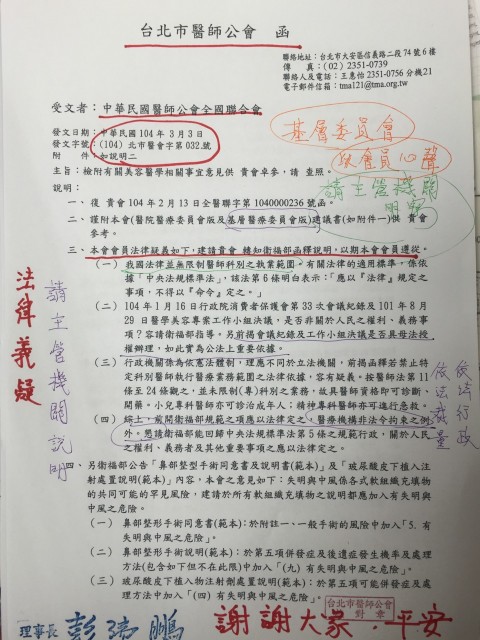 台北市醫師公會　函
聯絡地址：台北市大安區信義路二段74號6樓
傳　真：(02) 2351-0739
聯絡人及電話：王惠怡 2351-0756 分機21
電子郵件信箱：tma121@tma.org.tw
受文者：中華民國醫師公會全國聯合會
發文日期：中華民國 104 年 3 月 3 日
發文字號：(104) 北市醫會字第 032 號
附　件：如說明二
基層委員會
會員心聲
請主管機關
明
主旨：檢附有關美容醫學相關事宜意見供 貴會卓參，請 查照。
說明：
一、復 貴會 104 年 2 月 13 日全醫聯字第 1040000236 號函。
二、謹附本會(醫院醫療委員會版及基層醫療委員會版)建議書(如附件一)供 貴會
參考。
三、本會會員法律疑義如下，建請貴會 轉知衛福部函釋說明，以期本會會員遵從。
(一) 我國法律並無限制醫師科別之執業範圍。有關法律的適用標準，係依
據「中央法規標準法」，該法第 6 條明白表示：「應以『法律』規定之
事項，不得以『命令』定之。」
(二) 104 年 1 月 16 日行政院消費者保護會第 33 次會議紀錄及 101 年 8 月
29 日醫學美容專案工作小組決議，是否非關於人民之權利、義務事
項？容請衛福部指導。另前揭會議紀錄及工作小組決議是否具母法授
權辦理，如此實為公法上重要依據。
(三) 行政機關 動為依憲法體制，理應不同於立法機關，前揭函釋若禁止特
定科別醫師執行醫療業務範圍之法律依據，容有疑義。按醫師法第 11
條至 24 條觀之，並未限制(專)科別之業務，故具醫師資格即可診斷、
開藥。小兒專科醫師亦可診治成年人；精神專科醫師亦可進行急救。
(四) 綜上，前開衛福部規範之項應以法律定之，醫療機構非法令拘束之例
外。懇請衛福部能回歸中央法規標準法第 5 條之規範行政，關於人民
之權利、義務者及其他重要事項之應以法律定之。
四、另衛福部公告「鼻部整型手術同意書及說明書(範本)」及「玻尿酸皮下植入注
射處置說明(範本)」內容，本會之意見如下：失明與中風係各式軟組織充填物
的共同可能的罕見風險，建請於所有軟組織充填物之說明都應加入有失明與
中風之危險。
(一) 鼻部整形手術同意書(範本)：於附註一、一般手術的風險中加入「5. 有
失明與中風之危險」。
(二) 鼻部整形手術說明(範本)：於第五項併發症及後遺症發生機率及處理
方法(包含如下但不在此限)中加入「(九) 有失明與中風之危險」。
(三) 玻尿酸皮下植入物注射劑處置說明(範本)：於第五項可能併發症及處
理方法中加入「(四) 有失明與中風之危險」。
法律義疑
請主管機關說明
依法行政
依法裁量
台北市醫師公會
對章
理事長
謝謝大家、平安